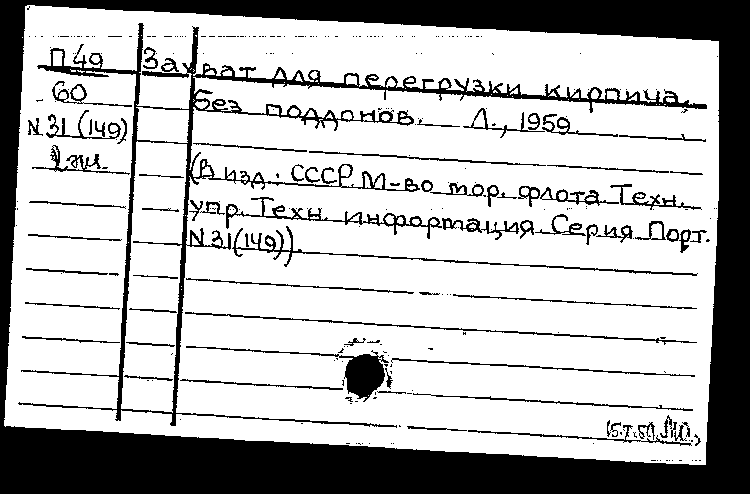 П49
60
N31 (149)
Захват для перегрузки кирпича,
без поддонов. Л., 1959.
(В изд.: СССР. М-во мор. флота Техн.
упр. Техн. информация. Серия Порт.
N31(149)).